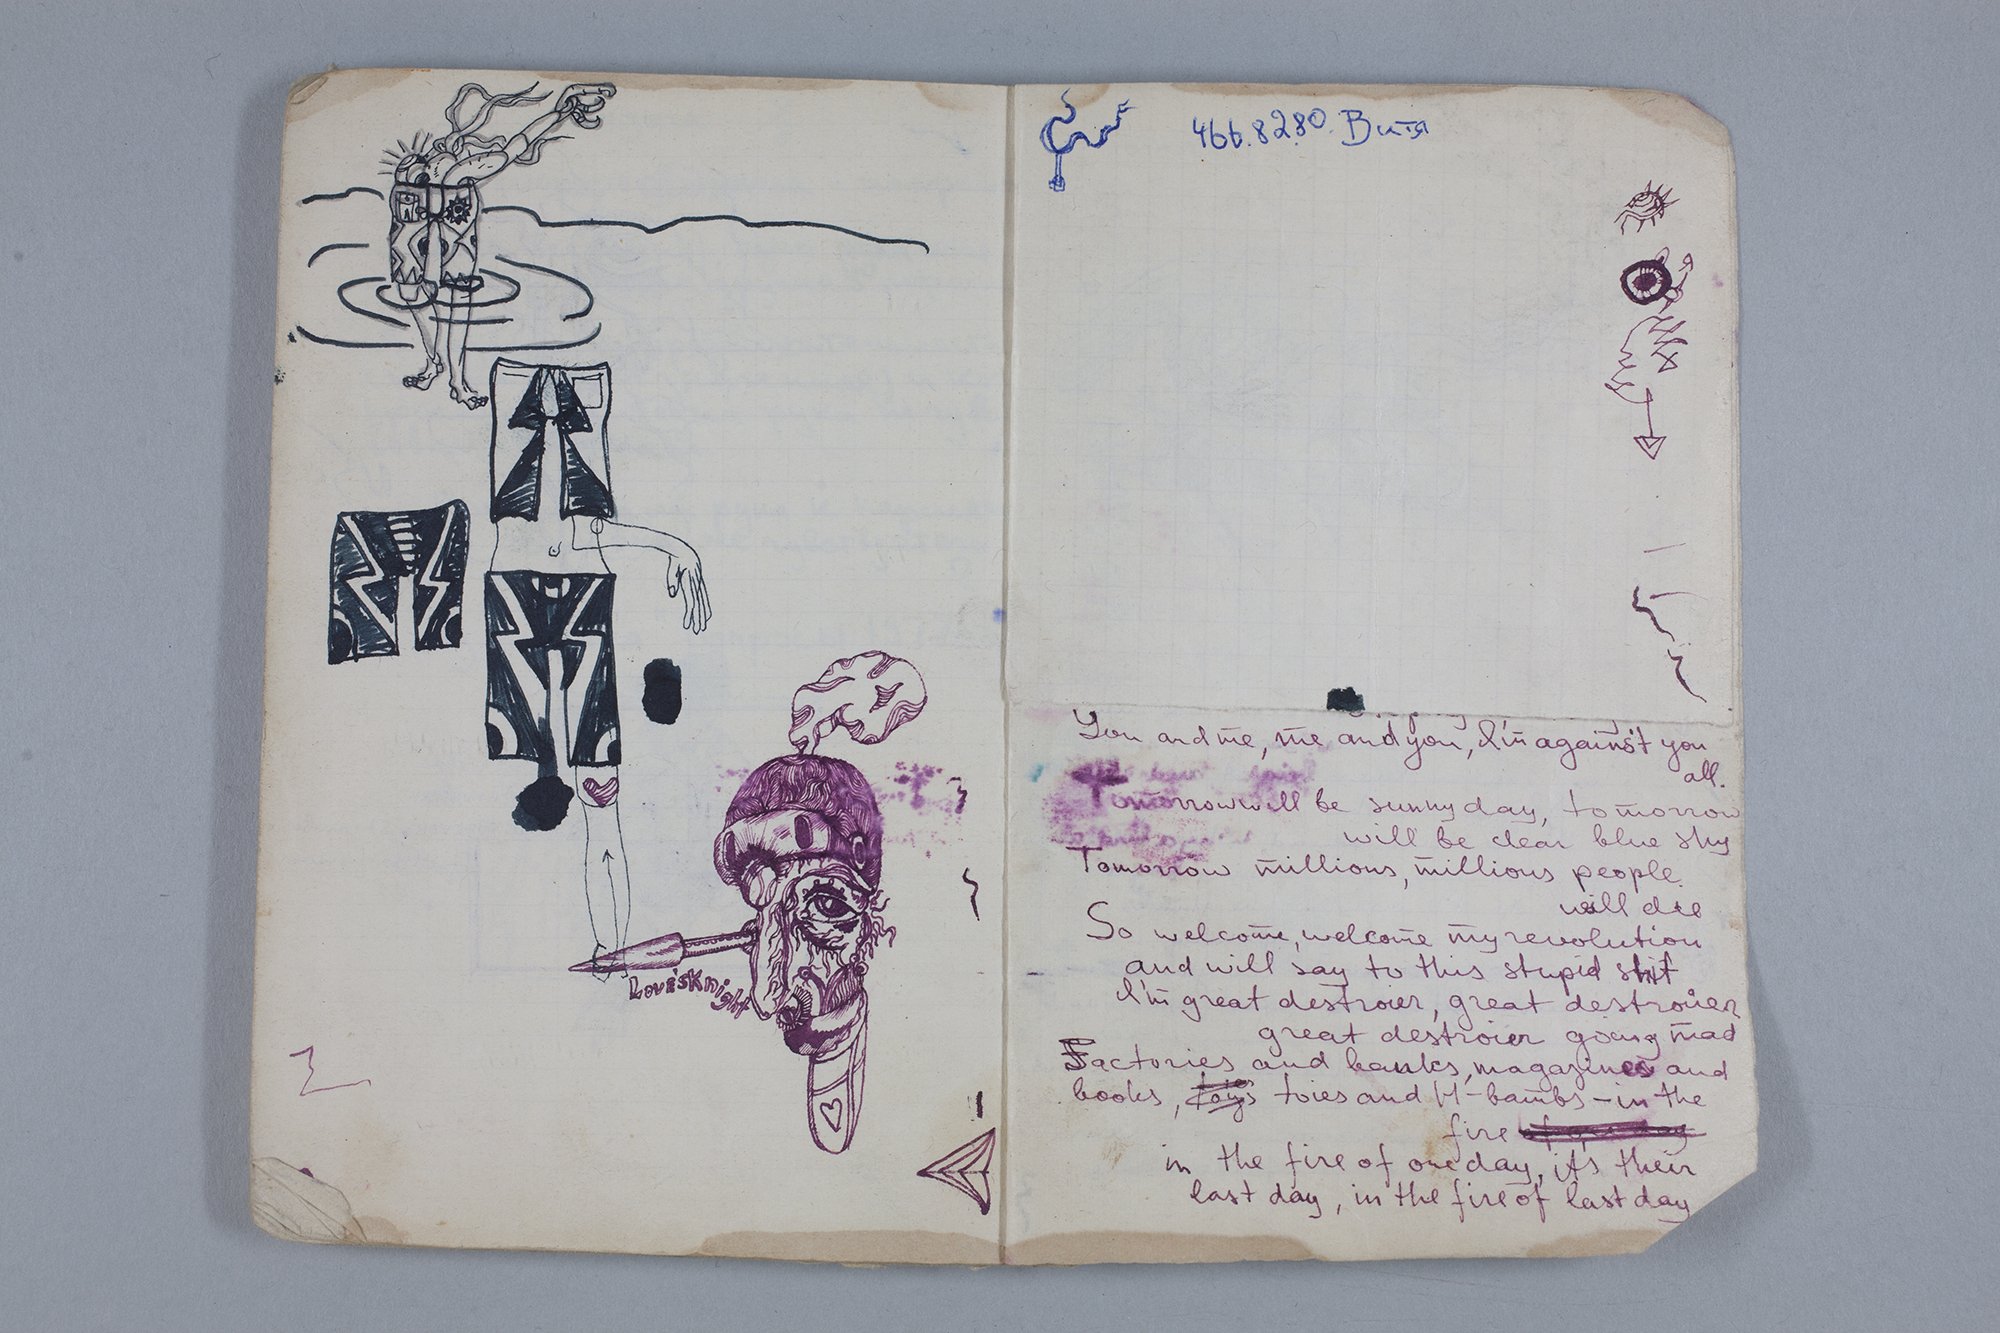 LoveisKnight
466.8280. Витя
You and me, me and you, I'm against you
all.
Tomorrow will be sunny day, tomorrow
will be clear blue sky
Tomorrow millions, millions people
will die
So welcome, welcome my revolution
and will say to this stupid shit
I'm great destroier, great destroier
great destroier going mad
Factories and banks, magazines and
books, toies and H-bombs – in the
fire
in the fire of one day, it's their
last day, in the fire of last day